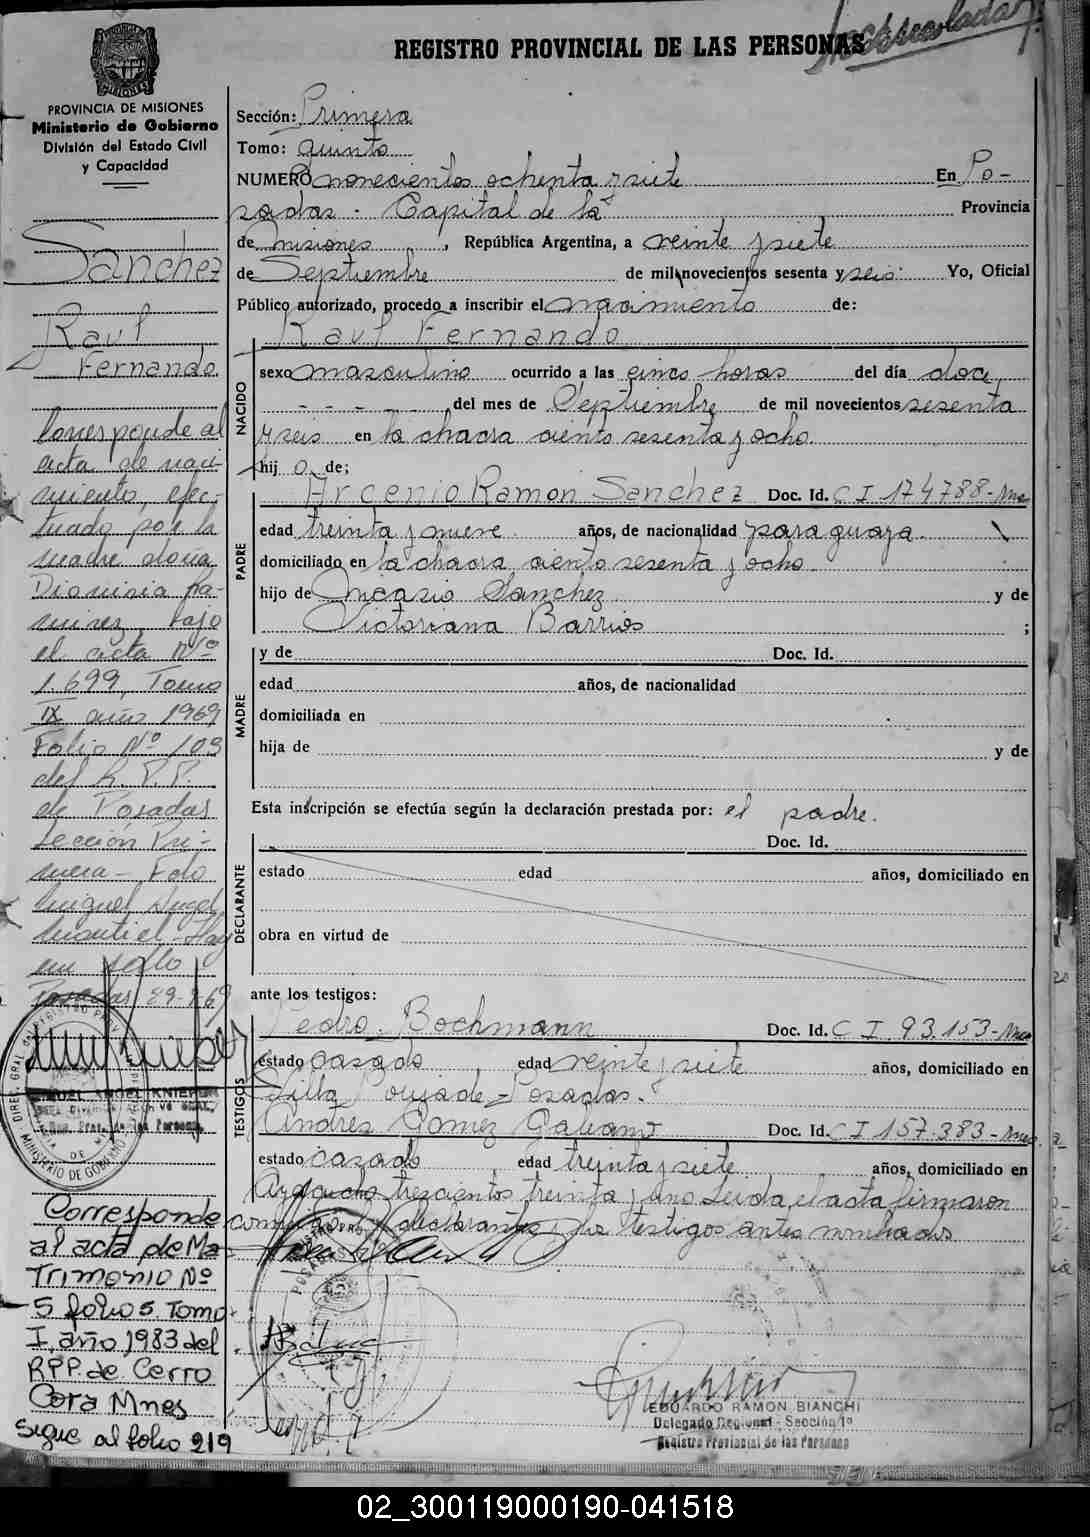 REGISTRO PROVINCIAL DE LAS PERSONAS
PROVINCIA DE MISIONES
Ministerio de Gobierno
División del Estado Civil
y Capacidad
Sanchez
Raul
Fernando
Corresponde al
acta de naci-
miento, efec-
tuado por la
madre doña
Dionisia Ra-
mirez, bajo
el acta Nº
1.699, Tomo
IX año 1969
Folio Nº 109
del R. P. P.
de Posadas
Sección Pri-
mera - Fdo
Miguel Angel
Montiel - Hay
un sello
Posadas 29-
MIGUEL ANGEL KNIEPER
MINISTERIO DE GOBIERNO
Corresponde
al acta de Ma-
trimonio Nº
5 folio 5 Tomo
I, año 1983 del
RPP. de Cerro
Cora Mnes
Sigue al folio 219
Sección: Primera
Tomo: quinto
NUMERO novecientos ochenta y siete En Po-
sadas - Capital de la Provincia
de Misiones, República Argentina, a veinte y siete
de Septiembre de mil novecientos sesenta y seis Yo, Oficial
Público autorizado, procedo a inscribir el nacimiento de:
Raul Fernando
NACIDO
sexo masculino ocurrido a las cinco horas del día doce
- - - - del mes de Septiembre de mil novecientos sesenta
y seis en la chacra ciento sesenta y ocho
hijo de;
PADRE
Arcenio Ramon Sanchez Doc. Id. C I 174788-Mnes
edad treinta y nueve años, de nacionalidad paraguaya.
domiciliado en la chacra ciento sesenta y ocho.
hijo de Nicasio Sanchez y de
Victoriana Barrios ;
MADRE
y de Doc. Id.
edad años, de nacionalidad
domiciliada en
hija de y de
Esta inscripción se efectúa según la declaración prestada por: el padre.
DECLARANTE
Doc. Id.
estado edad años, domiciliado en
obra en virtud de
ante los testigos:
TESTIGOS
Pedro Bochmann Doc. Id. C I 93.153-Mnes
estado casado edad veinte y siete años, domiciliado en
Villa Poujade - Posadas.
Andres Gomez Galeano Doc. Id. C I 157.383-Mnes.
estado casado, edad treinta y siete años, domiciliado en
Ayacucho trescientos treinta y uno Leida el acta firmaron
conmigo el declarante y los testigos antes nombrados
EDUARDO RAMON BIANCHI
Delegado Regional - Sección 1ª
Registro Provincial de las Personas
02_300119000190-041518